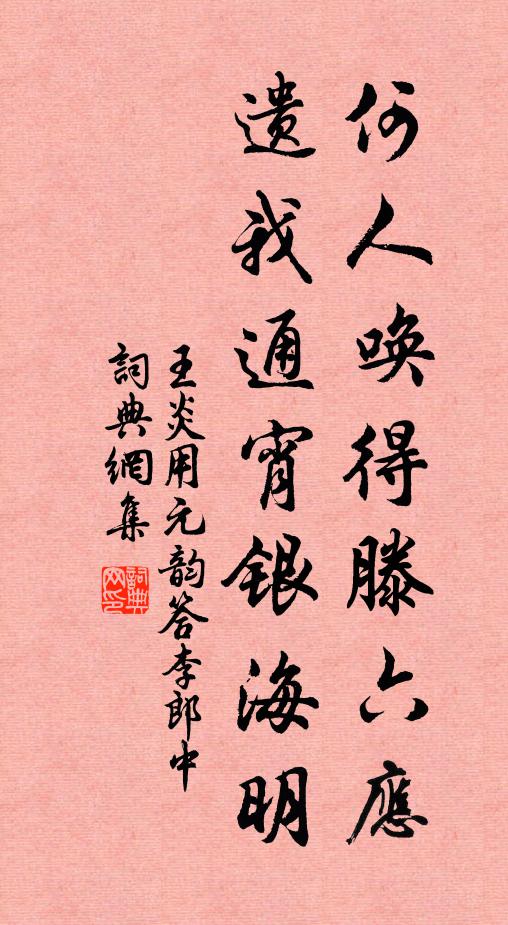 何人喚得滕六應
遺我通宵銀海明
王炎用元韵答李郎中
詞典網集
詞典网印